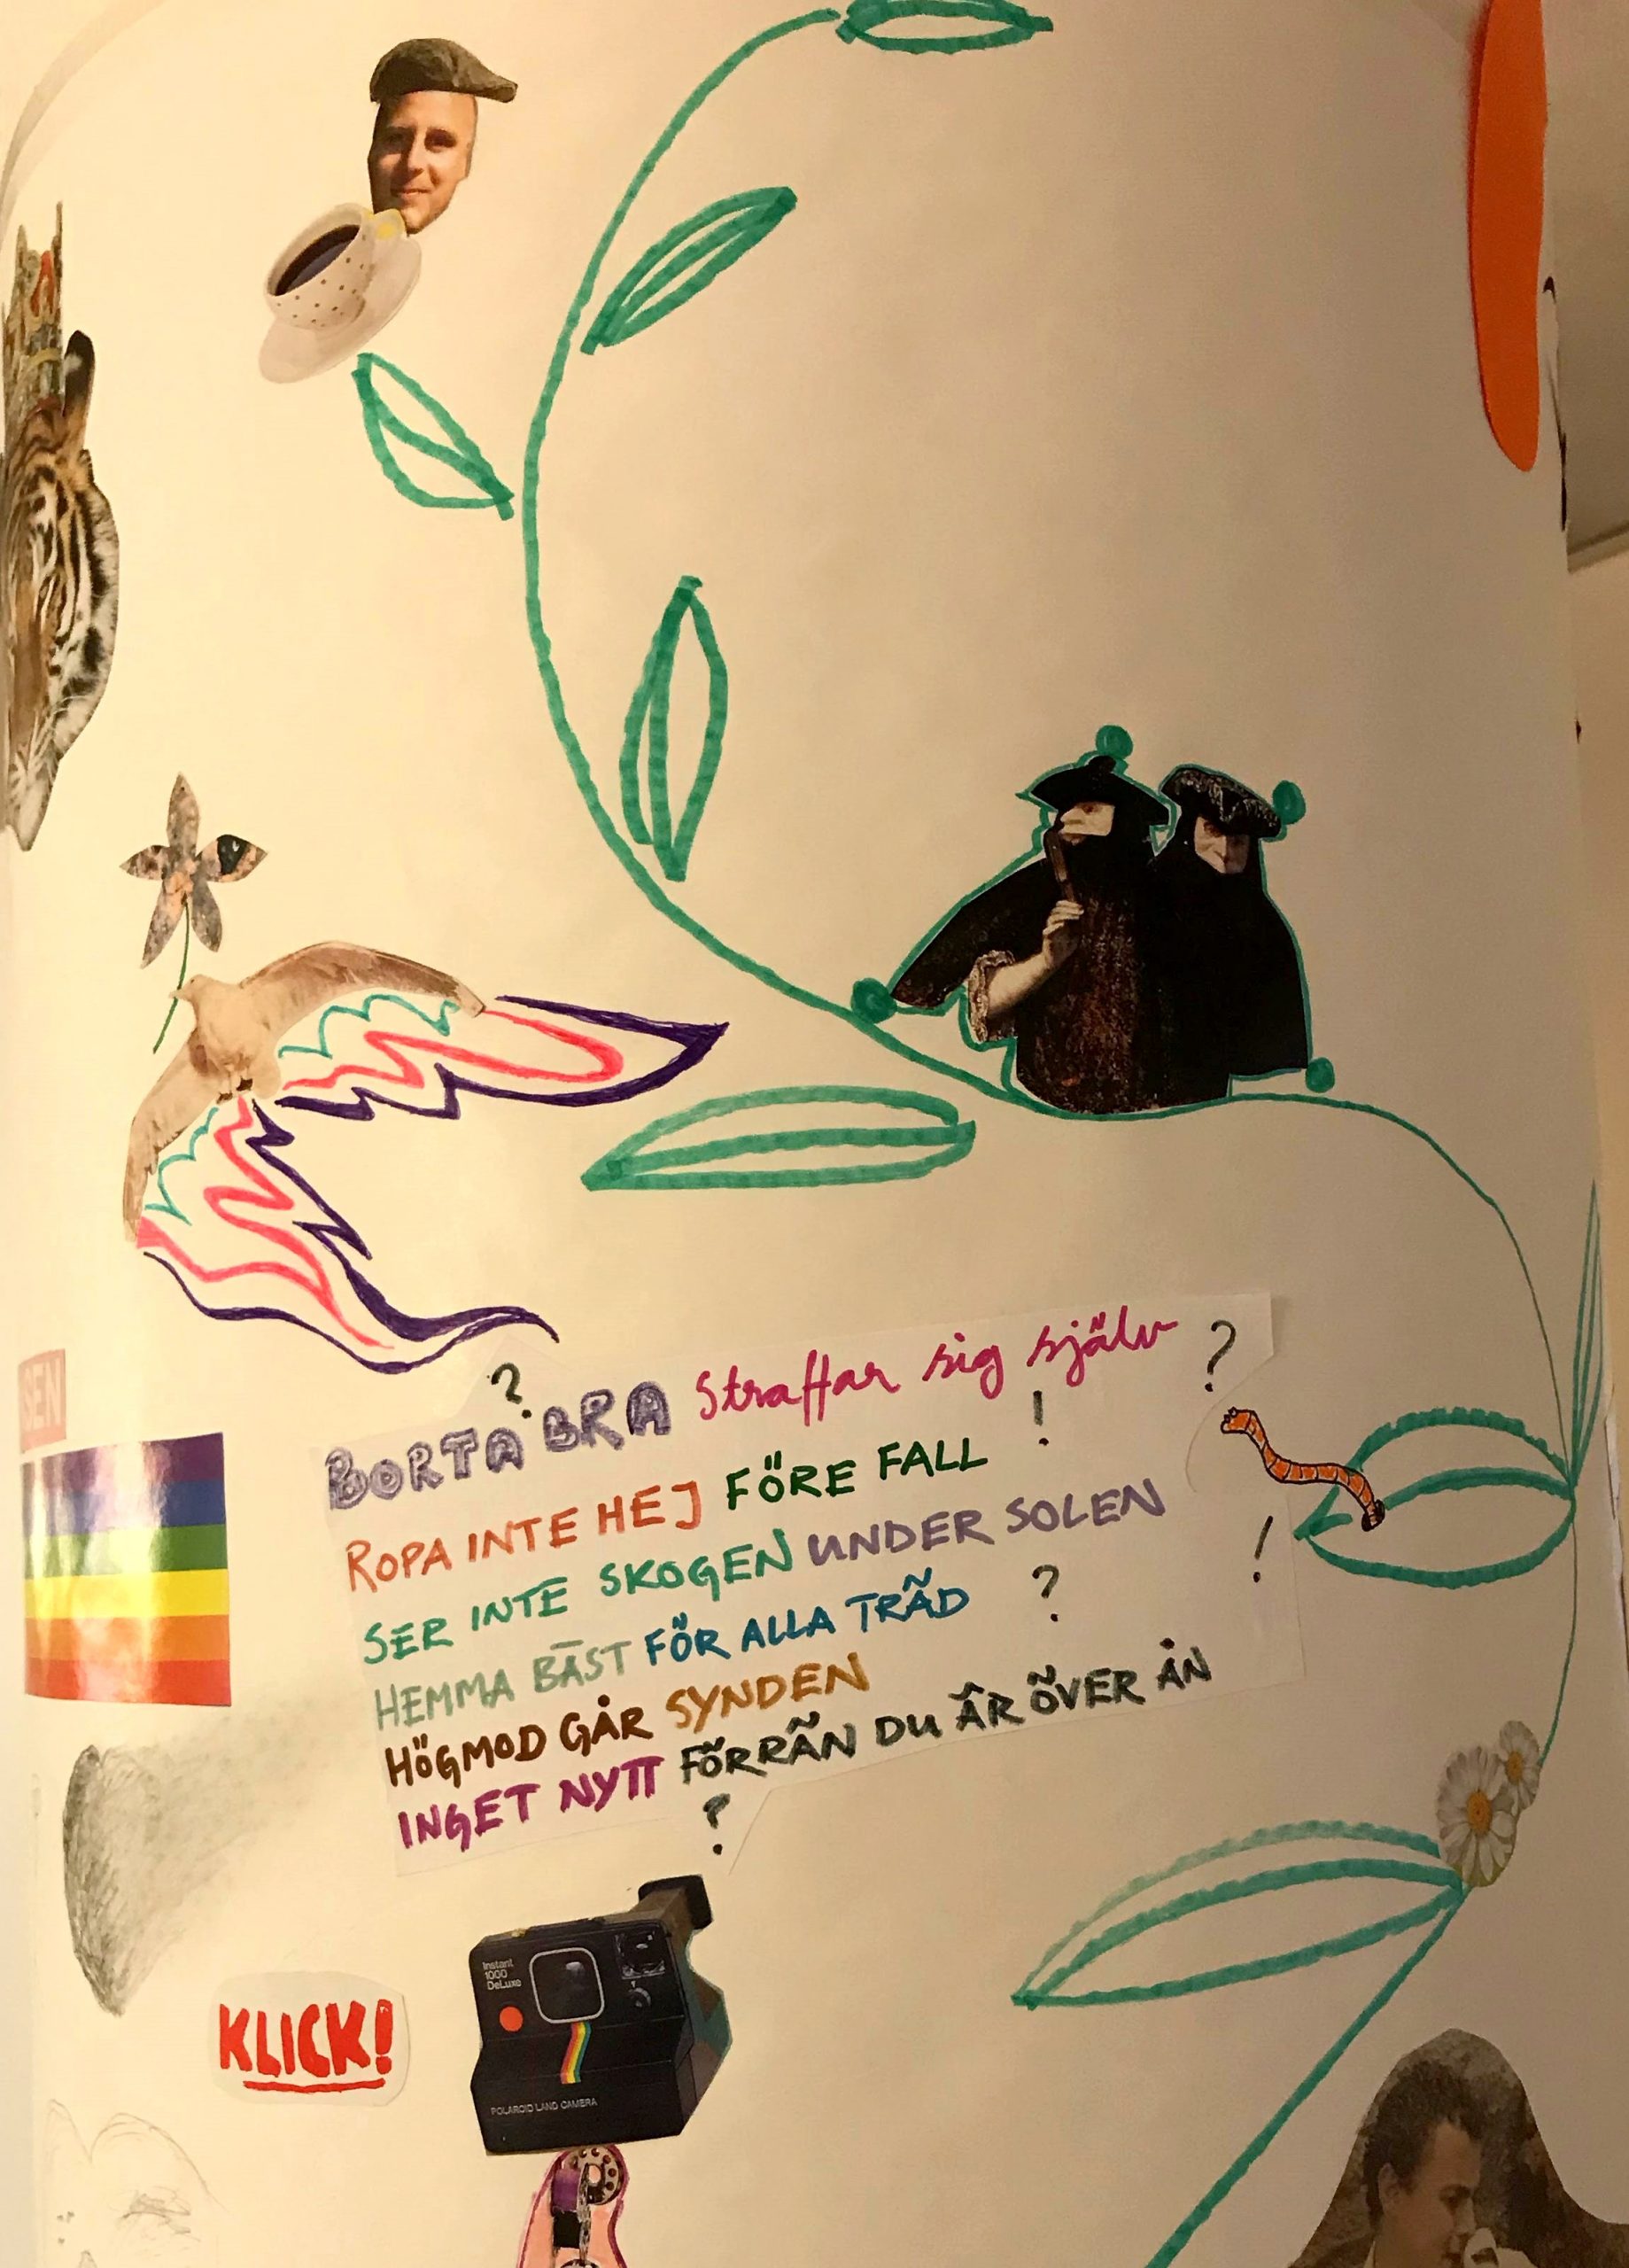 SEN
?
BORTA BRA straffar sig själv ?
ROPA INTE HEJ FÖRE FALL !
SER INTE SKOGEN UNDER SOLEN !
HEMMA BÄST FÖR ALLA TRÄD ?
HÖGMOD GÅR SYNDEN
INGET NYTT FÖRRÄN DU ÄR ÖVER ÅN
?
KLICK!
Instant
1000
DeLuxe
POLAROID LAND CAMERA